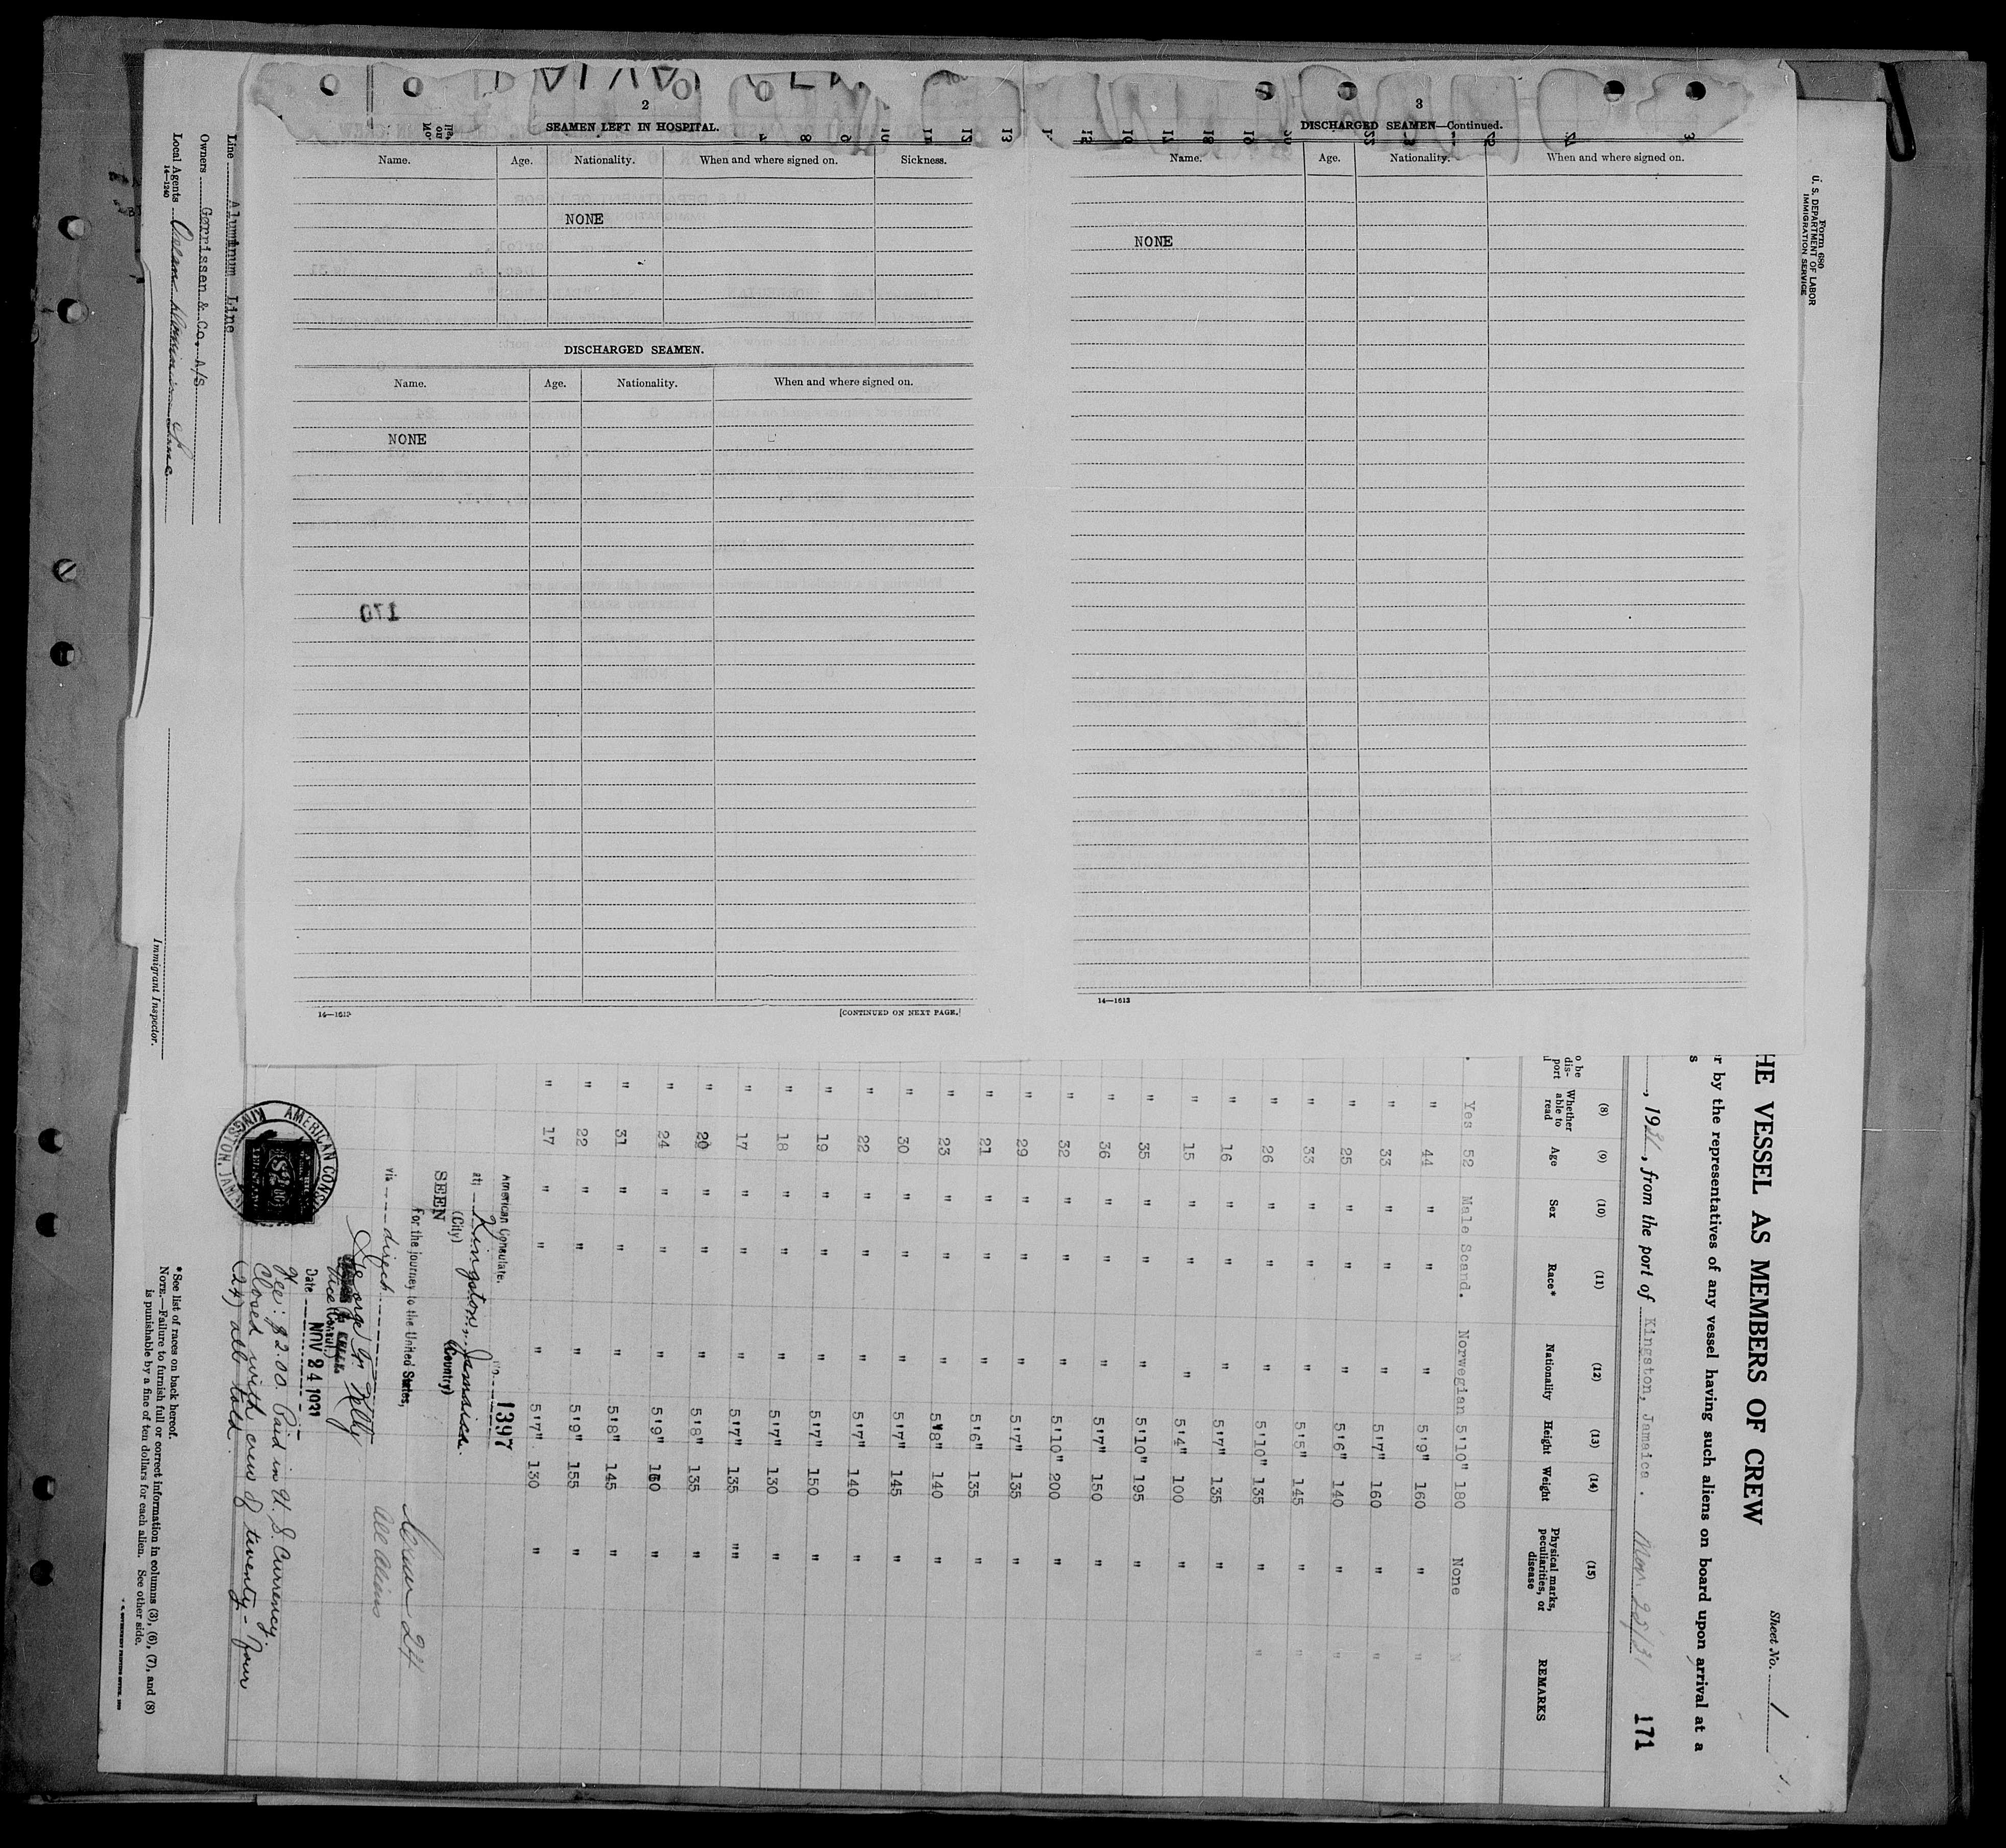 2
SEAMEN LEFT IN HOSPITAL.
Name. Age. Nationality. When and where signed on. Sickness.
NONE
DISCHARGED SEAMEN.
Name. Age. Nationality. When and where signed on.
NONE
170
14—1613
[CONTINUED ON NEXT PAGE.]
3
DISCHARGED SEAMEN—Continued.
Name. Age. Nationality. When and where signed on.
NONE
14—1613
Form 680
U. S. DEPARTMENT OF LABOR
IMMIGRATION SERVICE
Sheet No. 1
HE VESSEL AS MEMBERS OF CREW
r by the representatives of any vessel having such aliens on board upon arrival at a
, 1931, from the port of Kingston, Jamaica.
171
(8) (9) (10) (11) (12) (13) (14) (15)
Whether able to read Age Sex Race* Nationality Height Weight Physical marks, peculiarities, or disease REMARKS
Yes 52 Male Scand. Norwegian 5'10" 180 None
" 44 " " " 5'9" 160 "
" 33 " " " 5'7" 160 "
" 25 " " " 5'6" 140 "
" 33 " " " 5'5" 145 "
" 26 " " " 5'10" 135 "
" 16 " " " 5'7" 135 "
" 15 " " " 5'4" 100 "
" 35 " " " 5'10" 195 "
" 36 " " " 5'7" 150 "
" 32 " " " 5'10" 200 "
" 29 " " " 5'7" 135 "
" 21 " " " 5'6" 135 "
" 23 " " " 5'8" 140 "
" 30 " " " 5'7" 145 "
" 22 " " " 5'7" 140 "
" 19 " " " 5'7" 150 "
" 18 " " " 5'7" 130 "
" 17 " " " 5'7" 135 ""
" 20 " " " 5'8" 135 "
" 24 " " " 5'9" 160 "
" 31 " " " 5'8" 145 "
" 22 " " " 5'9" 155 "
" 17 " " " 5'7" 130 "
American Consulate.
No. 1397
at Kingston, Jamaica.
(City) (Country)
SEEN
For the journey to the United States,
via direct
Crew 24
All Aliens
Vice Consul
Date NOV 24 1931
Fee: $2.00. Paid in U.S. Currency.
Closed with crew of twenty-four
(24) all told.
AMERICAN CONS
KINGSTON, JAMAICA
Line Aluminum Line
Owners Gorrissen & Co. A/S
Local Agents
14—1240
Immigrant Inspector.
*See list of races on back hereof.
NOTE.—Failure to furnish full or correct information in columns (3), (6), (7), and (8)
is punishable by a fine of ten dollars for each alien. See other side.